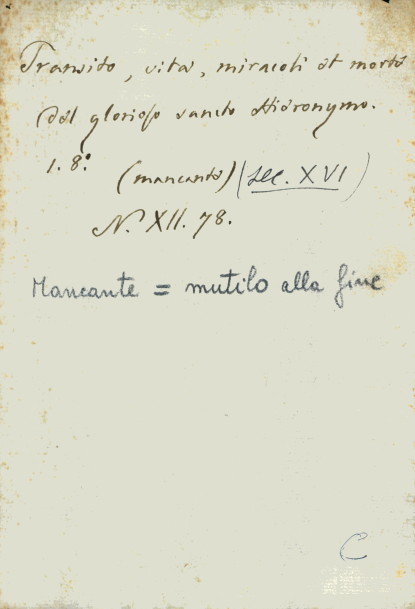 Transito, vita, miracoli et morte
del glorioso sancto Hieronymo.
1. 8.º
(mancante) (sec. XVI)
N.º XII. 78.
Mancante = mutilo alla fine
C